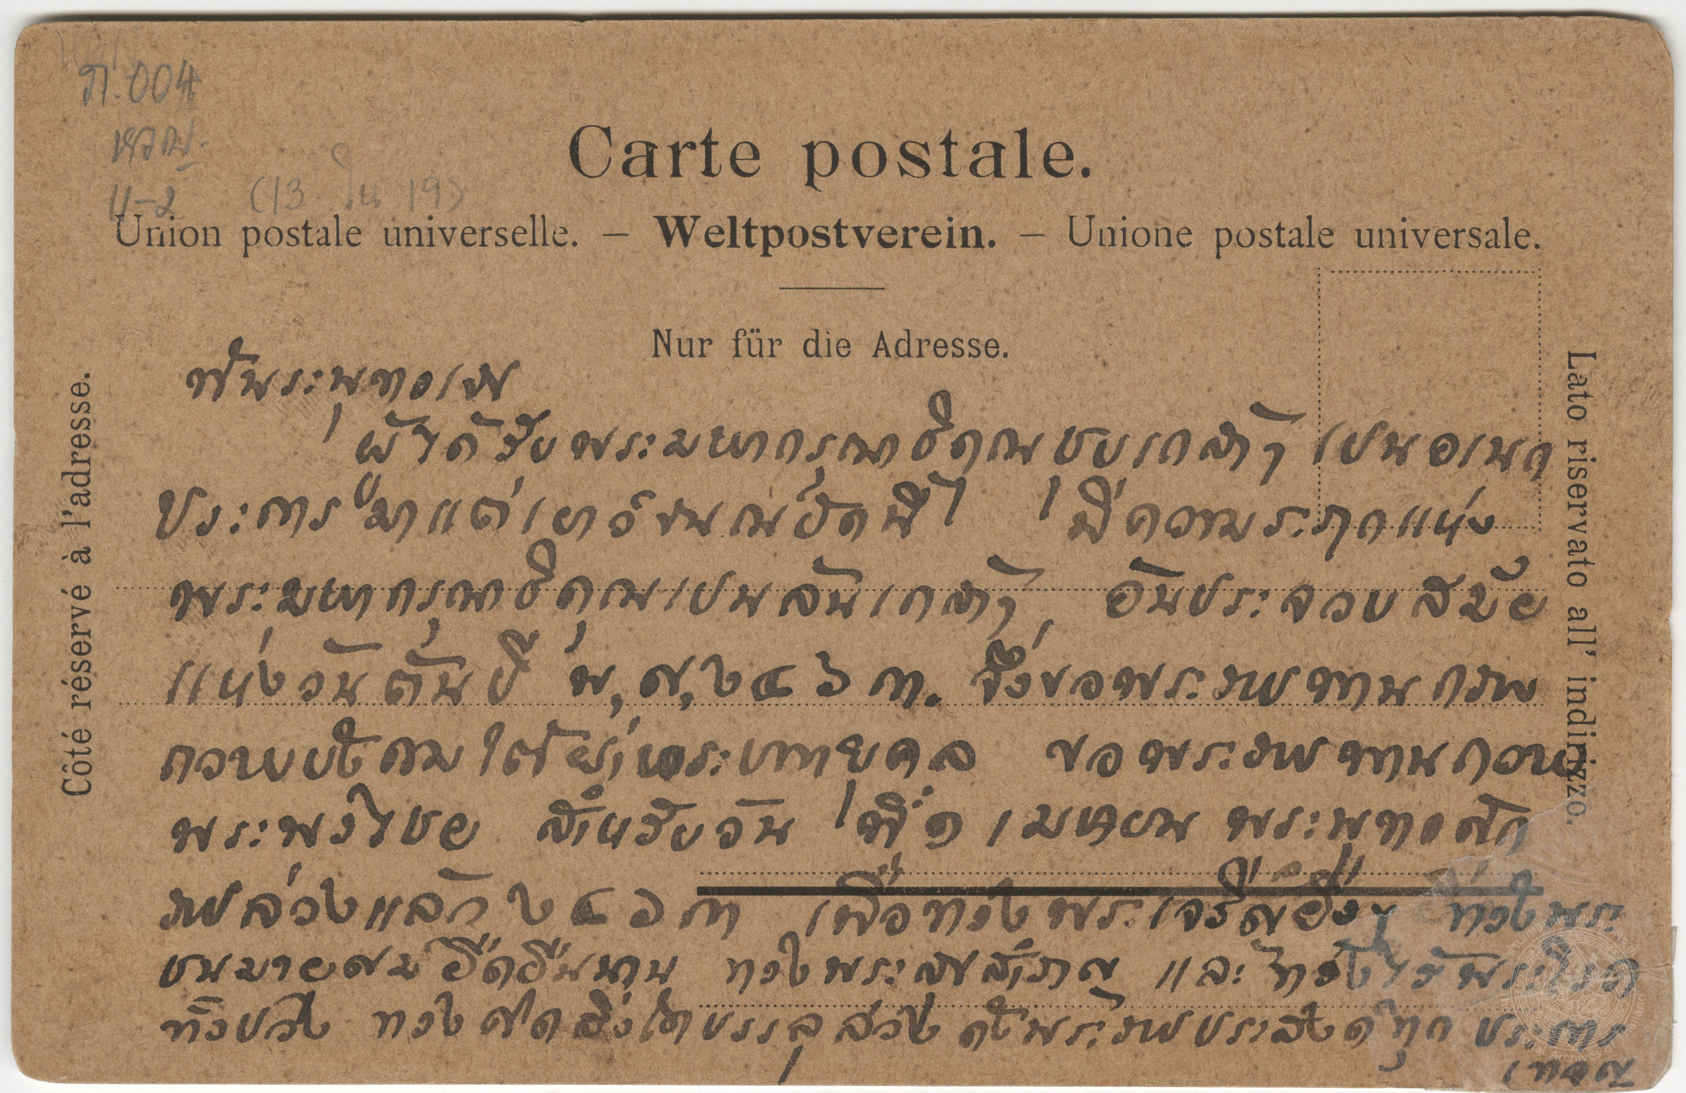 ภ.004
หวญ.
11-2 (13 ใน 19)
Carte postale.
Union postale universelle. – Weltpostverein. – Unione postale universale.
Nur für die Adresse.
Côté réservé à l'adresse.
Lato riservato all' indirizzo.
ได้รับพระมหากรุณาธิคุณชุบเกล้าฯ เปนอเนก
ประการ มาแต่ มีความระฦกแห่ง
พระมหากรุณาธิคุณเปนล้นเกล้าฯ อันประจวบสมัย
แห่งวันต้นปี พ,ศ,๒๔๖๓. จึ่งขอพระราชทานกราบ
ถวายบังคมใต้ฝ่าพระบาทยุคล ขอพระราชทานถวาย
พระพรไชย สำหรับวัน ที่ ๑ เมษายน พระพุทธศัก
ราชล่วงแล้ว ๒๔๖๓ เพื่อทรงพระเจริญยิ่งๆ ทรงพระ
ชนมายุ ยืนนาน ทรงพระสำราญ และ
ทั้งปวง ทรงคิดสิ่งใดบรรลุ ดังพระราชประสงค์ทุกประการ
เทอญ